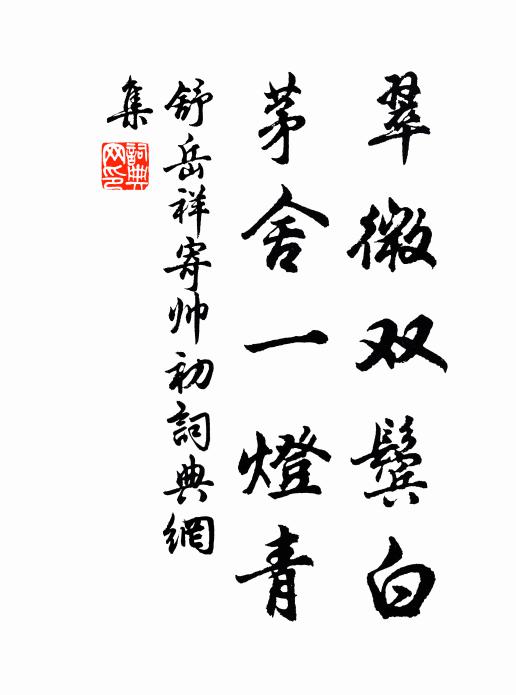 翠微双鬓白
茅舍一燈青
舒岳祥寄帅初詞典網
集
詞典网印